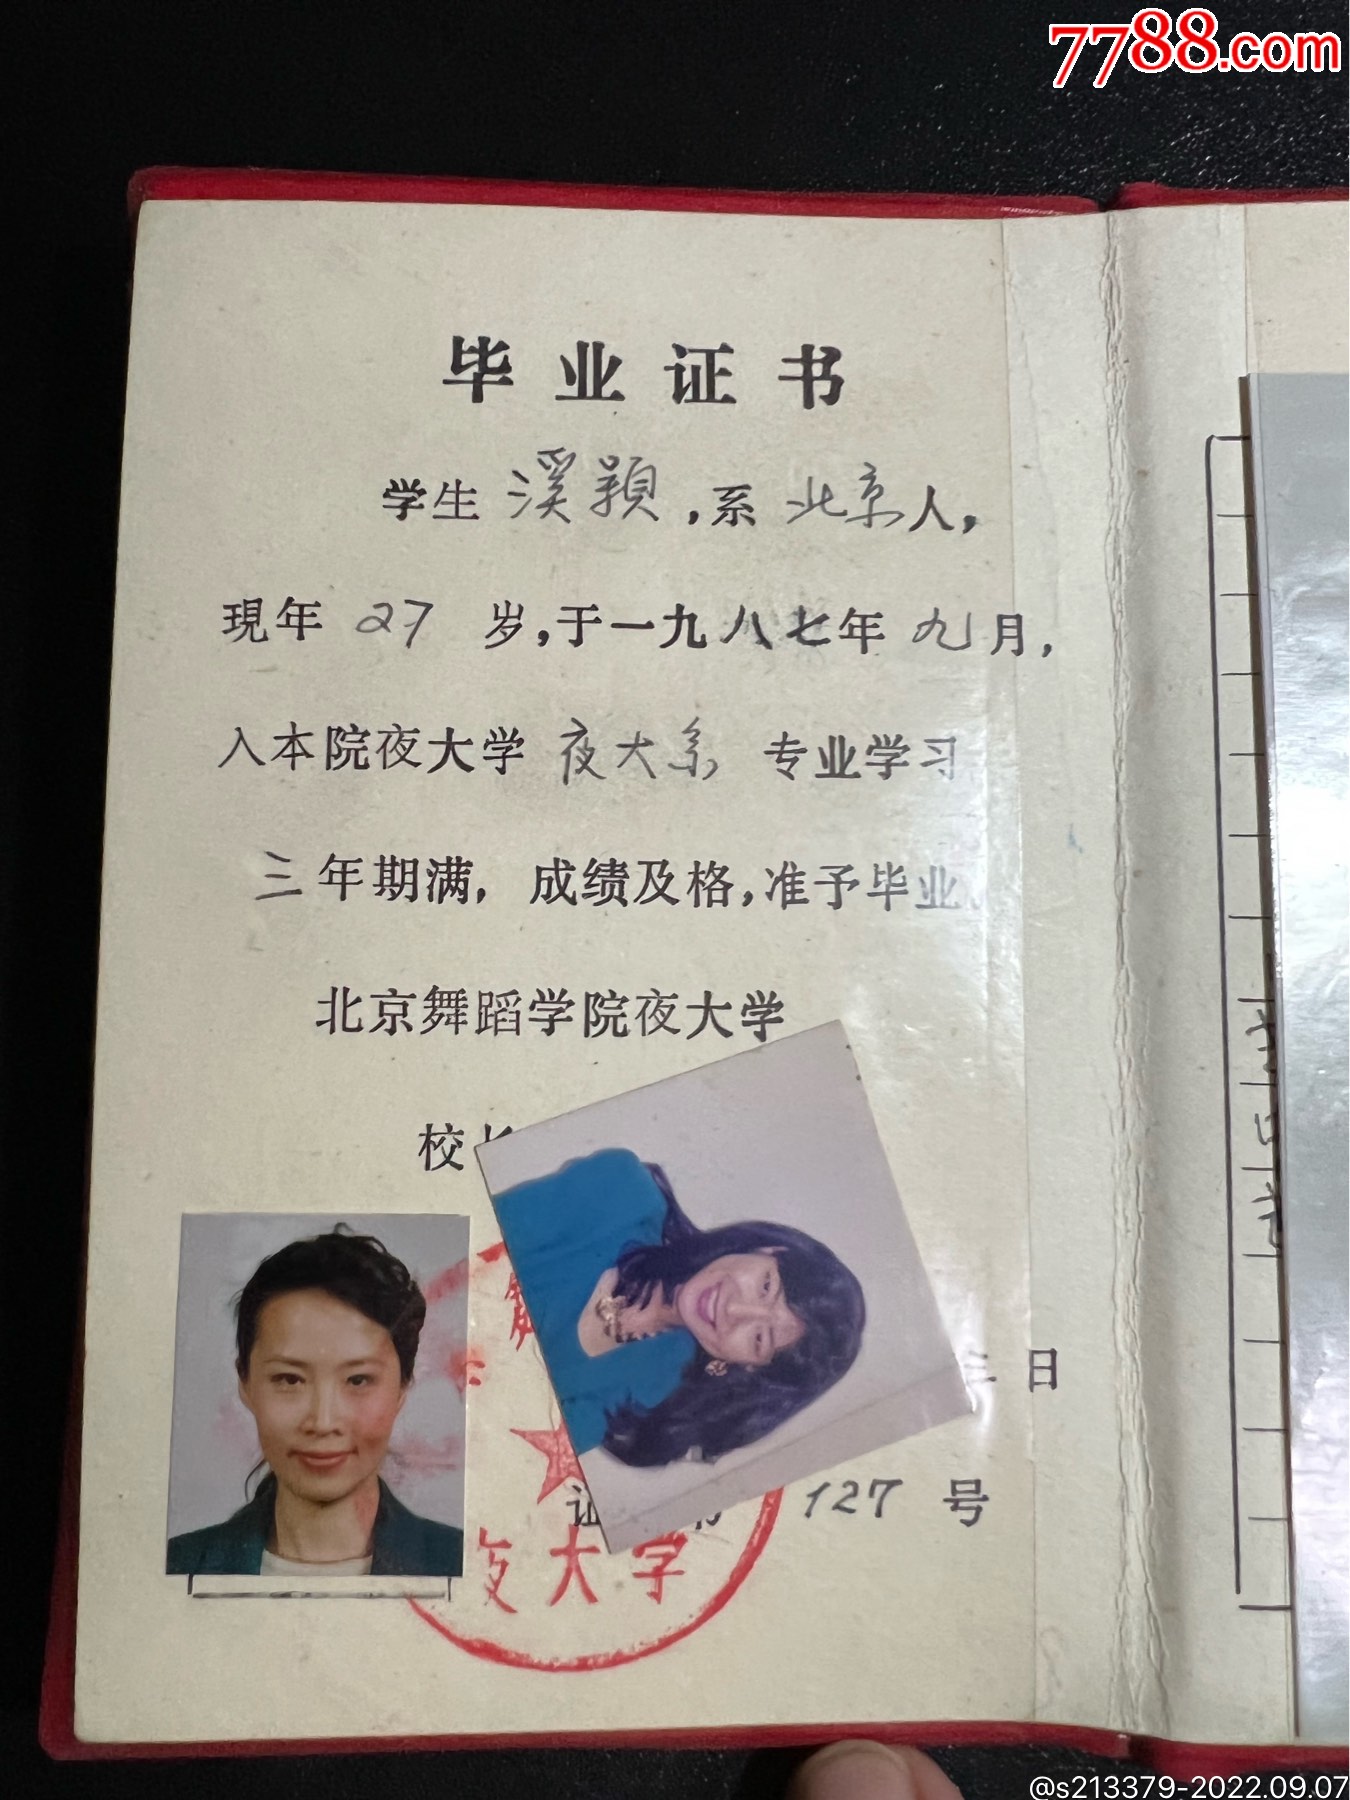 7788.com
毕业证书
学生 溪颖,系 北京人,
現年 27 岁,于一九八七年 九月,
入本院夜大学 夜大系 专业学习
三年期满,成绩及格,准予毕业。
北京舞蹈学院夜大学
校长
日
127 号
夜大学
@s213379-2022.09.07